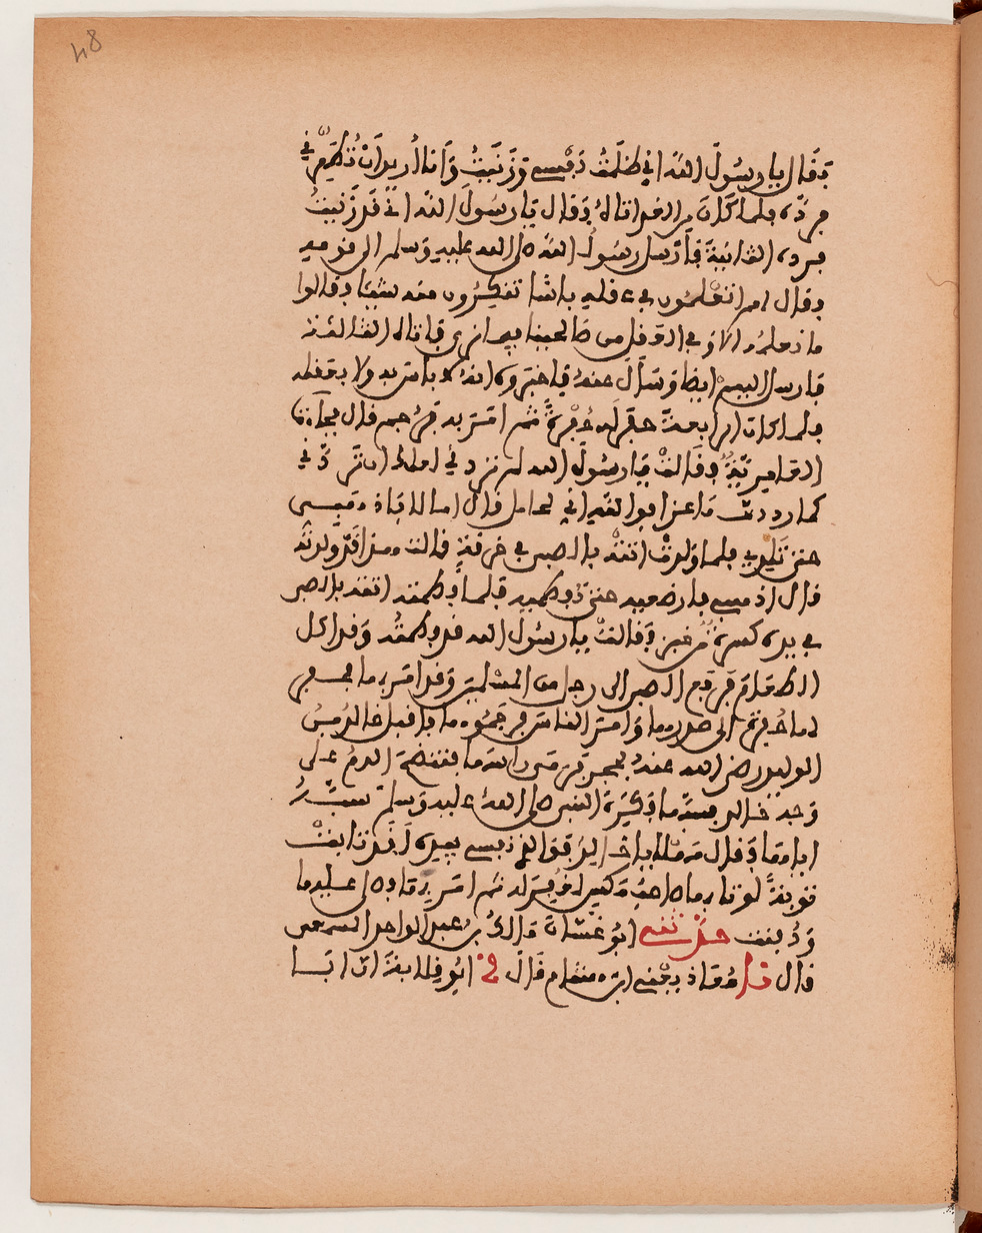 48
فقال يا رسول الله اني ظلمت نفسي وزنيت وانا أريد ان تطهرني
فرده فلما كان من الغد اتاه فقال يا رسول الله اني قد زنيت
فرده الثانية فأرسل رسول الله صلى الله عليه وسلم الى قومه
فقال اتعلمون في عقله باسا تنكرون منه شيئا فقالوا
ما نعلمه الا وفي العقل من صالحينا فيما نرى فاتاه الثالثة
فارسل اليهم ايضا وسأل عنه فاخبروه انه لا باس به ولا بعقله
فلما كان الرابعة حفر له حفرة ثم امر به فرجم قال فجاءت
الغامدية فقالت يا رسول الله لم تردني لعلك ان تردني
كما رددت ماعزا فوالله اني لحامل قال اما لا فاذهبي
حتى تلدي فلما ولدت اتته بالصبي في خرقة قالت هذا قد ولدته
قال اذهبي فارضعيه حتى تفطميه فلما فطمته اتته بالصبي
في يده كسرة خبز فقالت يا رسول الله قد فطمته وقد اكل
الطعام فرفع الصبي الى رجل من المسلمين وقد امر بها فحفر
لها حفرة الى صدرها وامر الناس فرجموها فاقبل خالد بن
الوليد رضي الله عنه بحجر فرمى راسها فنتضخ الدم على
وجه خالد فسبها فذكر النبي صلى الله عليه وسلم سبه
اياها فقال مهلا يا خالد فوالذي نفسي بيده لقد تابت
توبة لو تابها صاحب مكس لغفر له ثم امر بها فصلى عليها
ودفنت حدثني ابو غسان مالك بن عبد الواحد المسمعي
قال نا معاذ يعني ابن هشام قال ابو قلابة ان ابا